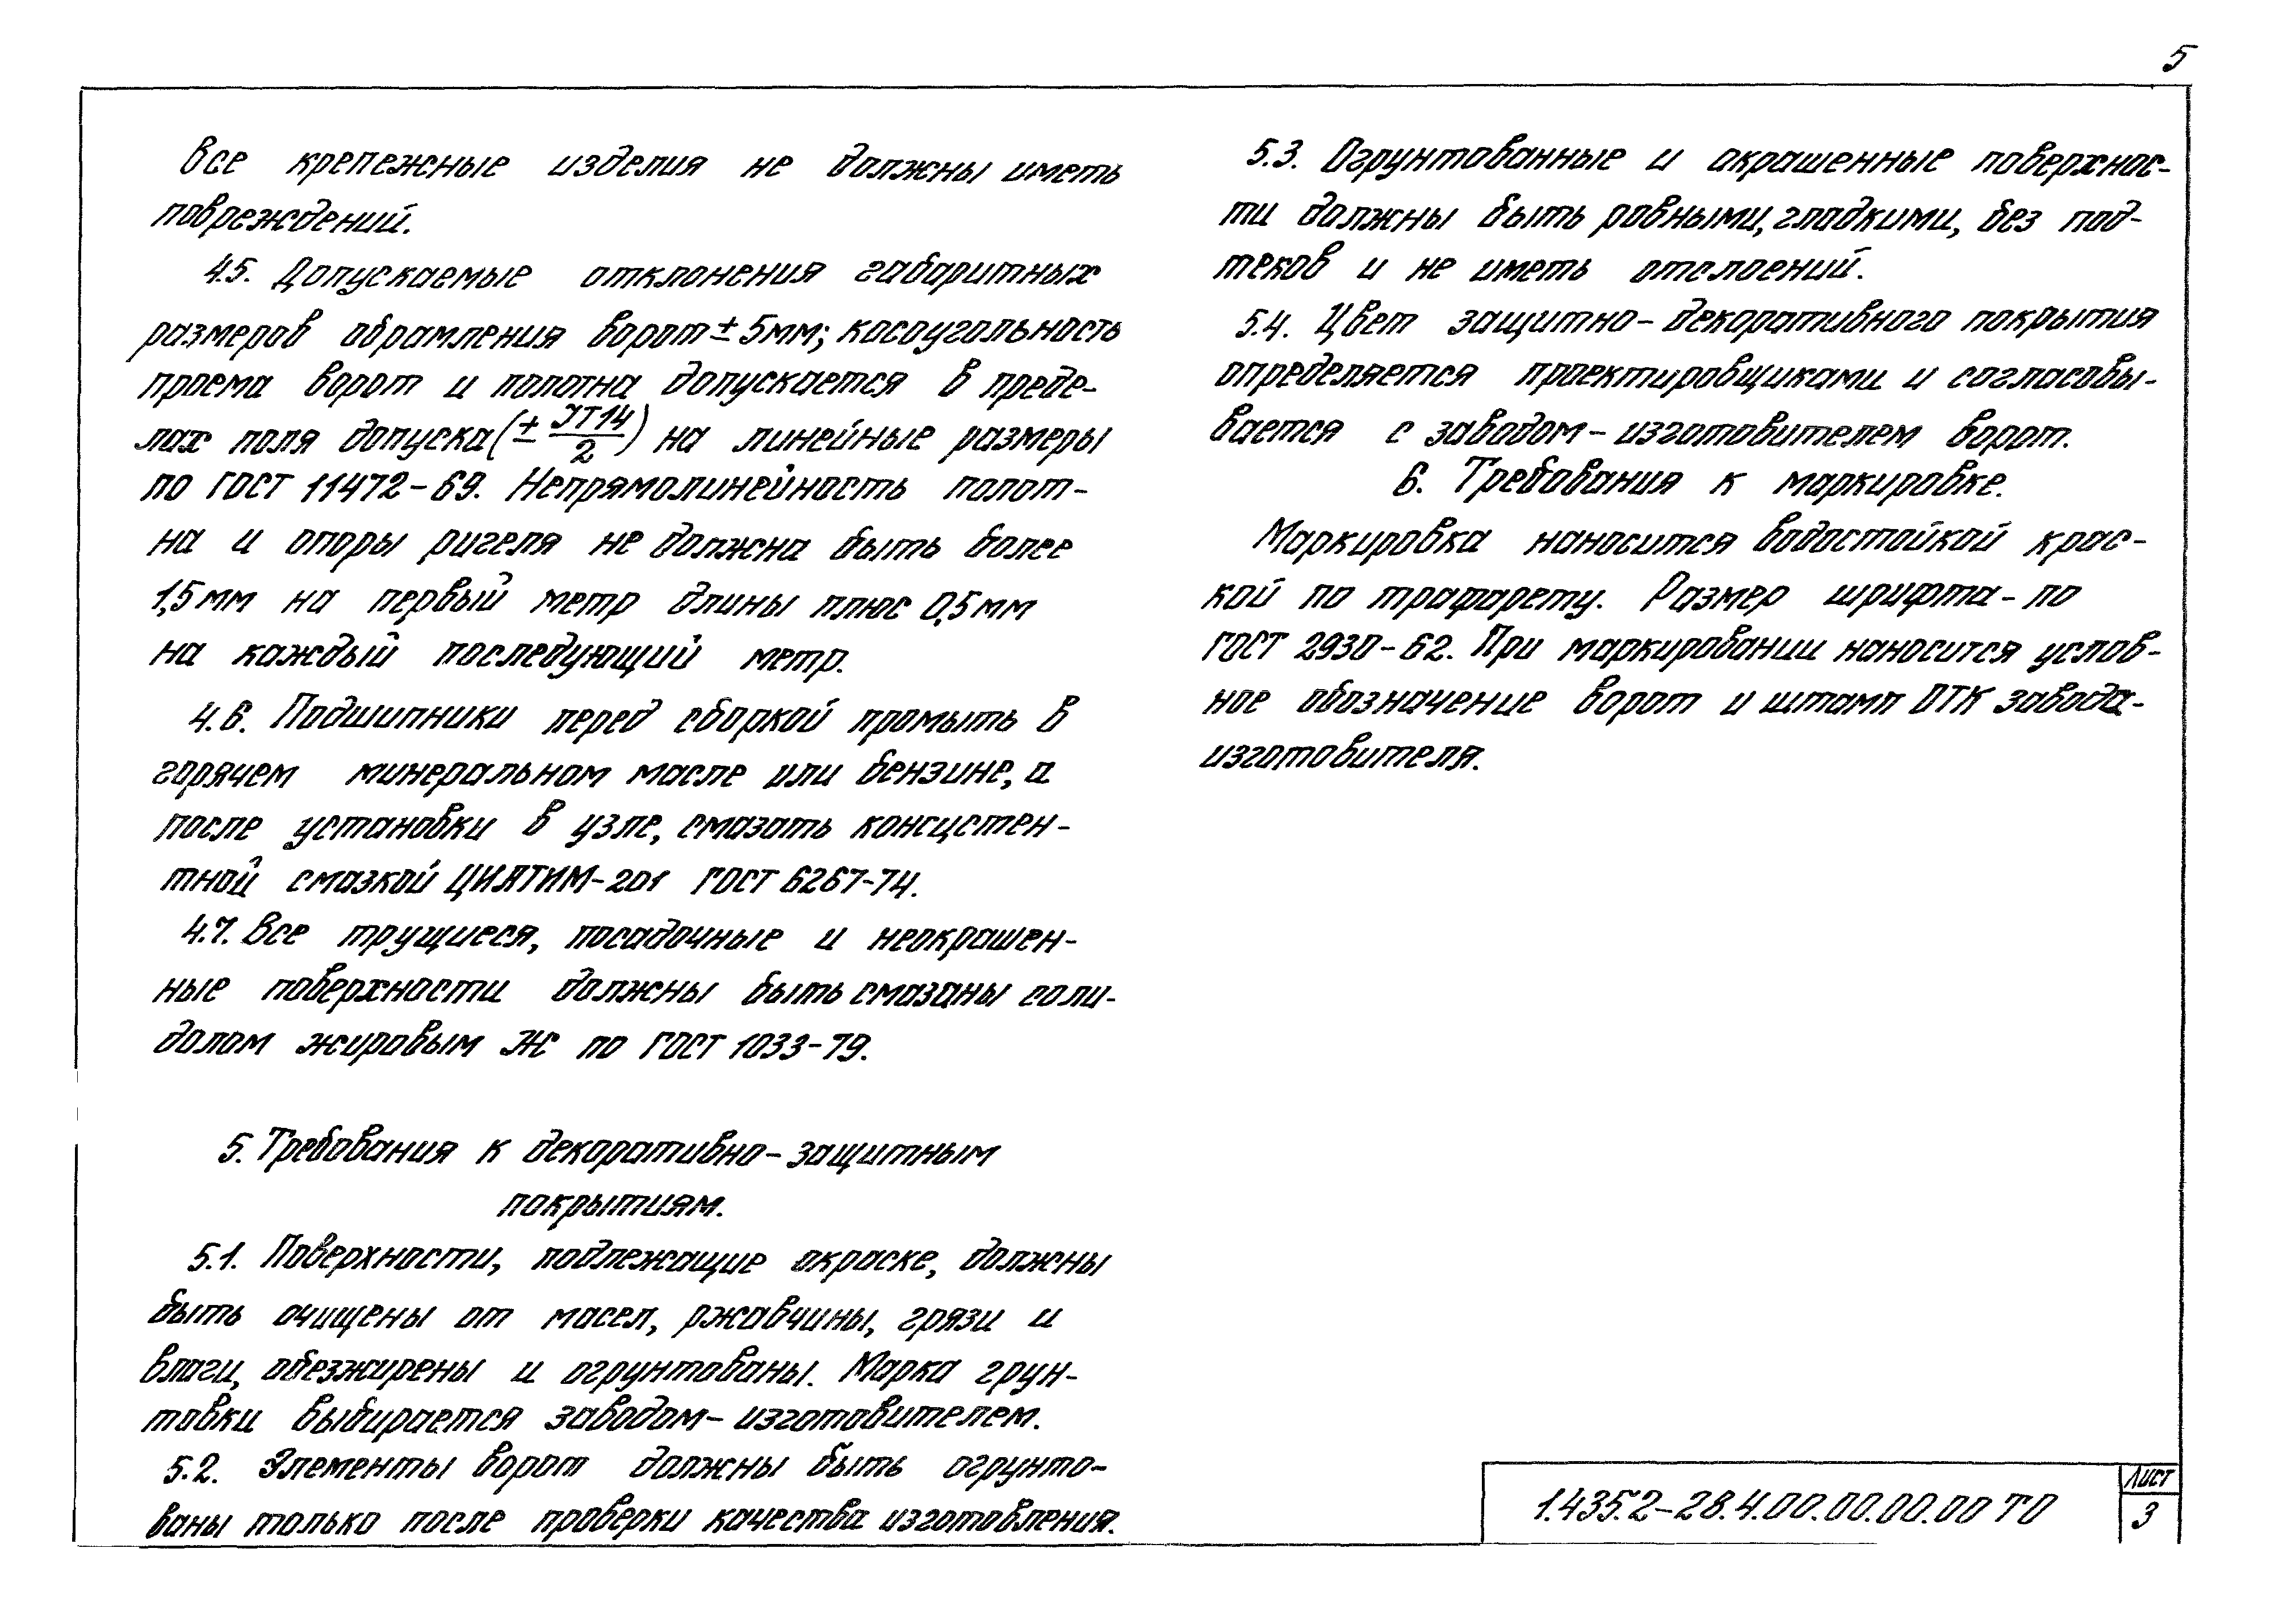 5
Все крепежные изделия не должны иметь
повреждений.
4.5. Допускаемые отклонения габаритных
размеров обрамления ворот ± 5мм; косоугольность
проема ворот и полотна допускается в преде-
лах поля допуска (± JT14/2) на линейные размеры
по ГОСТ 11472-69. Непрямолинейность полот-
на и опоры ригеля не должна быть более
1,5мм на первый метр длины плюс 0,5мм
на каждый последующий метр.
4.6. Подшипники перед сборкой промыть в
горячем минеральном масле или бензине, а
после установки в узле, смазать консистен-
тной смазкой ЦИЯТИМ-201 ГОСТ 6267-74.
4.7. Все трущиеся, посадочные и неокрашен-
ные поверхности должны быть смазаны соли-
долом жировым Ж по ГОСТ 1033-79.
5. Требования к декоративно-защитным
покрытиям.
5.1. Поверхности, подлежащие окраске, должны
быть очищены от масел, ржавчины, грязи и
влаги, обезжирены и огрунтованы. Марка грун-
товки выбирается заводом-изготовителем.
5.2. Элементы ворот должны быть огрунто-
ваны только после проверки качества изготовления.
5.3. Огрунтованные и окрашенные поверхнос-
ти должны быть ровными, гладкими, без под-
теков и не иметь отслоений.
5.4. Цвет защитно-декоративного покрытия
определяется проектировщиками и согласовы-
вается с заводом-изготовителем ворот.
6. Требования к маркировке.
Маркировка наносится водостойкой крас-
кой по трафарету. Размер шрифта-по
ГОСТ 2930-62. При маркировании наносится услов-
ное обозначение ворот и штамп ОТК завода-
изготовителя.
1.435.2-28.4.00.00.00.00 ТО
Лист
3